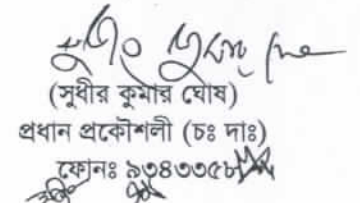 (সুধীর কুমার ঘোষ)
প্রধান প্রকৌশলী (চঃ দাঃ)
ফোনঃ ৯৩৪৩৩৫৮